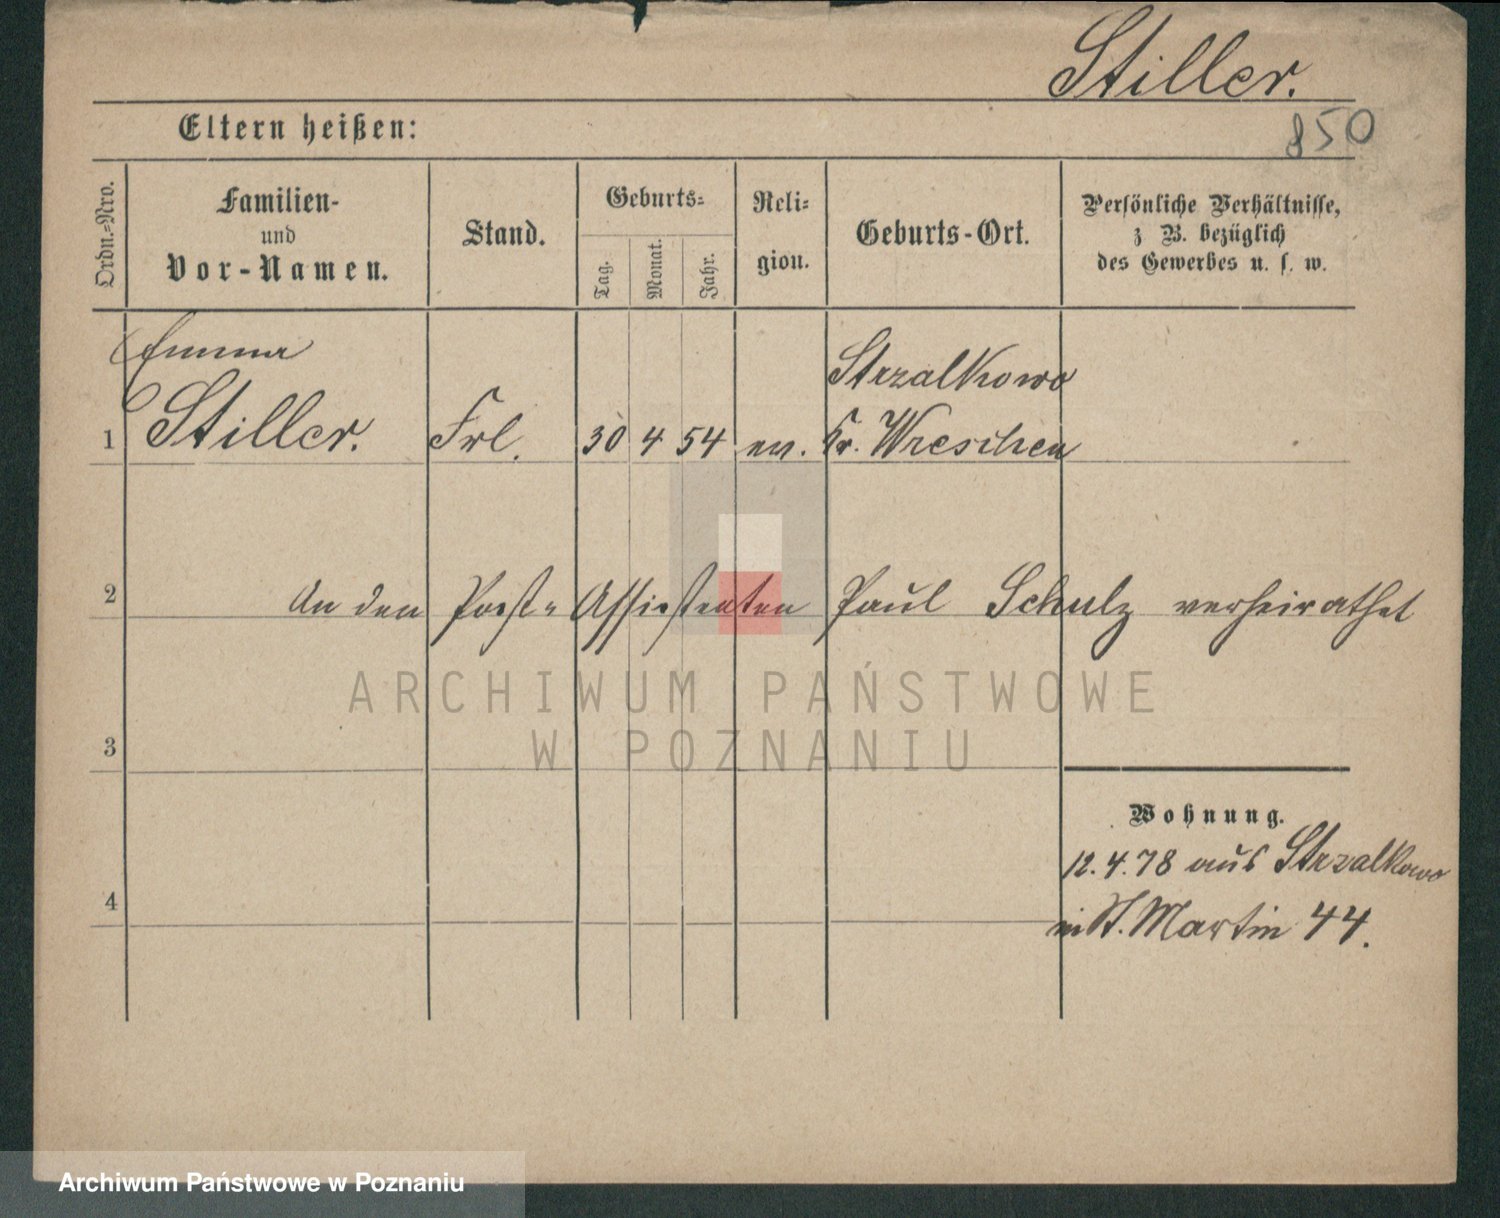 Stiller.
850
Eltern heißen:
Ordn.-Nro.
Familien-
und
Vor-Namen.
Stand.
Geburts-
Tag.
Monat.
Jahr.
Reli-
gion.
Geburts-Ort.
Persönliche Verhältnisse,
z B. bezüglich
des Gewerbes u. s. w.
Emma
Strzalkowo
1 Stiller. Frl. 30 4 54 ev. Kr. Wreschen
2 An den Post- Assistenten Paul Schulz verheirathet
ARCHIWUM PAŃSTWOWE
W POZNANIU
3
Wohnung.
12. 4. 78 aus Strzalkowo
4
in St. Martin 44.
Archiwum Państwowe w Poznaniu